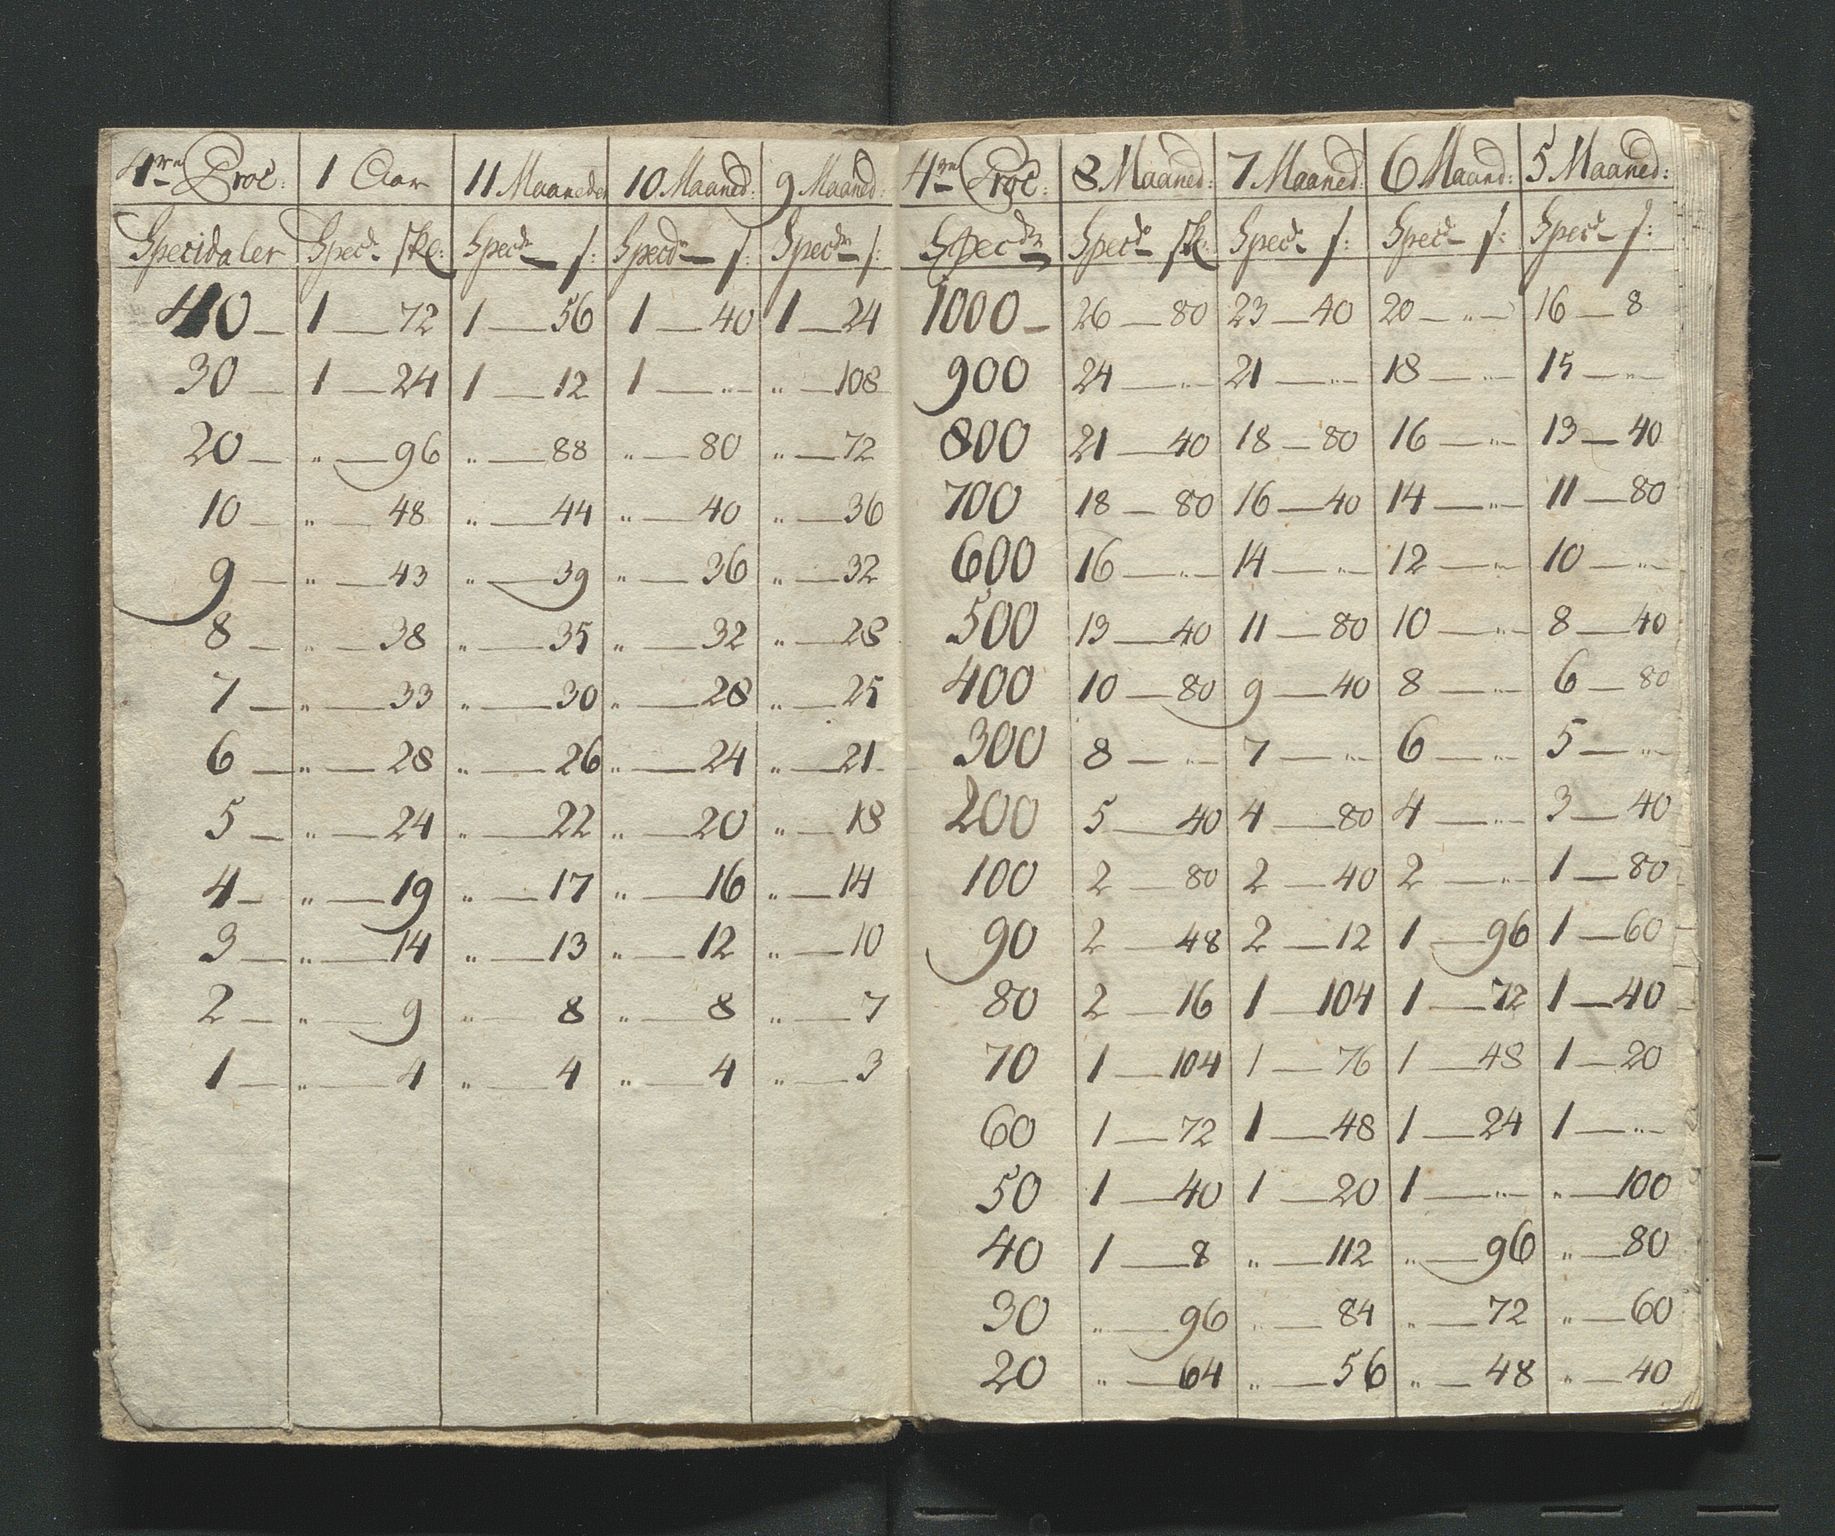 4re Proc: 1 Aar 11 Maaneder 10 Maaned: 9 Maaned:
Specidaler Specdr skl: Specdr s: Specdr s: Specdr s:
40 — 1 — 72 1 — 56 1 — 40 1 — 24
30 — 1 — 24 1 — 12 1 — " — " — 108
20 — " — 96 " — 88 " — 80 " — 72
10 — " — 48 " — 44 " — 40 " — 36
9 — " — 43 " — 39 " — 36 " — 32
8 — " — 38 " — 35 " — 32 " — 28
7 — " — 33 " — 30 " — 28 " — 25
6 — " — 28 " — 26 " — 24 " — 21
5 — " — 24 " — 22 " — 20 " — 18
4 — " — 19 " — 17 " — 16 " — 14
3 — " — 14 " — 13 " — 12 " — 10
2 — " — 9 " — 8 " — 8 " — 7
1 — " — 4 " — 4 " — 4 " — 3
4re Proc: 8 Maaned: 7 Maaned: 6 Maaned: 5 Maaned:
Specdr Specdr skl Specdr s: Specdr s: Specdr s:
1000 — 26 — 80 23 — 40 20 — " — 16 — 8
900 24 — " 21 — " — 18 — " — 15 — " —
800 21 — 40 18 — 80 16 — " 13 — 40
700 18 — 80 16 — 40 14 — " — 11 — 80
600 16 — " — 14 — " — 12 — " — 10 — " —
500 13 — 40 11 — 80 10 — " — 8 — 40
400 10 — 80 9 — 40 8 — " — 6 — 80
300 8 — " — 7 — " — 6 — " — 5 — " —
200 5 — 40 4 — 80 4 — " — 3 — 40
100 2 — 80 2 — 40 2 — " — 1 — 80
90 2 — 48 2 — 12 1 — 96 1 — 60
80 2 — 16 1 — 104 1 — 72 1 — 40
70 1 — 104 1 — 76 1 — 48 1 — 20
60 1 — 72 1 — 48 1 — 24 1 — " —
50 1 — 40 1 — 20 1 — " — " — 100
40 1 — 8 " — 112 " — 96 " — 80
30 " — 96 " — 84 " — 72 " — 60
20 " — 64 " — 56 " — 48 " — 40